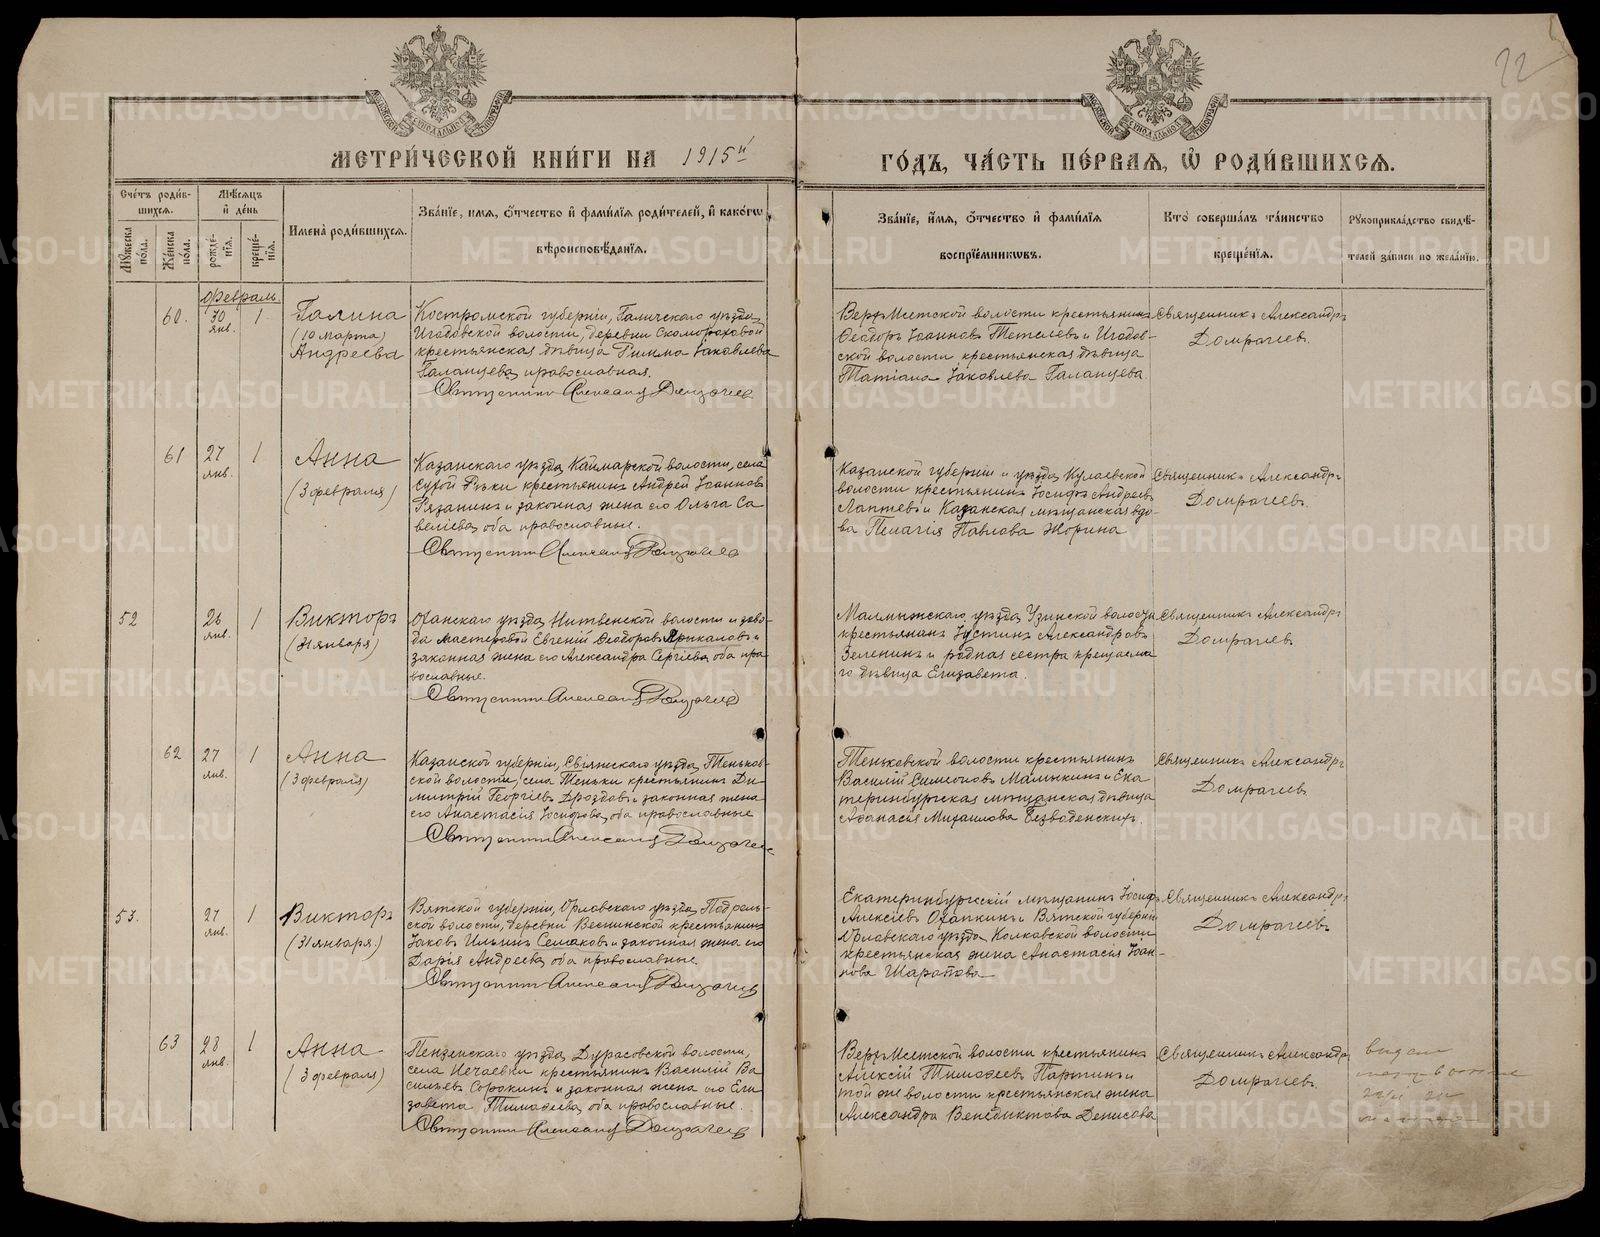 22
МОСКОВСКОЙ СѴНОДАЛЬНОЙ ТИПОГРАФІИ
МОСКОВСКОЙ СѴНОДАЛЬНОЙ ТИПОГРАФІИ
МЕТРИ́ЧЕСКОЙ КНИ́ГИ НА 1915й
ГО́ДЪ, ЧА́СТЬ ПЕ́РВАЯ, Ѡ РОДИ́ВШИХСЯ.
Сче́тъ роди́в-
шихся.
Мѣ́сяцъ
и де́нь
Мꙋжеска по́ла.
Же́нска по́ла.
рожде́-нїя.
креще́-нїя.
Имена̀ роди́вшихся.
Зва́нїе, имя, о́тчество и фами́лїя роди́телей, и како́гѡ
вѣроисповѣ́данїя.
Зва́нїе, и́мя, о́тчество и фами́лїя
воспрїе́мникѡвъ.
Кто̀ соверша́лъ та́инство
креще́нїя.
Рꙋкоприкла́дство свидѣ́-
телей за́писи по жела́нїю.
Февраль
60. 30 янв. 1
Галина
(10 марта)
Андреева
Костромской губерніи, Галичскаго уѣзда,
Игодовской волости, деревни Скомороховой
крестьянская дѣвица Римма Іаковлева
Галанцева, православная.
Верх-Исетской волости крестьянинъ
Ѳеодоръ Іоанновъ Тетелевъ и Игодов-
ской волости крестьянская дѣвица
Татіана Іаковлева Галанцева.
Священникъ Александръ
Домрачевъ.
61 27 янв. 1
Анна
(3 февраля)
Казанскаго уѣзда, Каймарской волости, села
Сухой Рѣки крестьянинъ Андрей Іоанновъ
Рязанинъ и законная жена его Ольга Са
веліева, оба православные.
Казанской губерніи и уѣзда, Кулаевской
волости крестьянинъ Іосифъ Андреевъ
Лаптевъ и Казанская мѣщанская вдо-
ва Пелагія Павлова Жорина
Священникъ Александръ
Домрачевъ.
52 26 янв. 1
Викторъ
(31 января)
Оханскаго уѣзда, Нытвенской волости и заво-
да мастеровой Евгеній Ѳеодоровъ и
законная жена его Александра Сергіева, оба пра
вославные.
Малмыжскаго уѣзда, Узинской волости
крестьянинъ Іустинъ Александровъ
Зеленинъ и родная сестра крещаема
го дѣвица Елизавета.
Священникъ Александръ
Домрачевъ
62 27 янв. 1
Анна
(3 февраля)
Казанской губерніи, Свіяжскаго уѣзда, Теньков-
ской волости, села Теньки крестьянинъ Ди-
митрій Георгіевъ Дроздовъ и законная жена
его Анастасія Іосифова, оба православные
Теньковской волости крестьянинъ
Василій Симеоновъ Малыкинъ и Ека
теринбургская мѣщанская дѣвица
Аѳанасія Михаилова Безводенскихъ.
Священникъ Александръ
Домрачевъ
53. 27 янв. 1
Викторъ
(31 января.)
Вятской губерніи, Орловскаго уѣзда, Подрель-
ской волости, деревни Веснинской крестьянинъ
Іаковъ Ильинъ Семаковъ и законная жена его
Дарія Андреева, оба православные.
Екатеринбургскій мѣщанинъ Іосифъ
Алексіевъ Охапкинъ и Вятской губерніи
Орловскаго уѣзда, Колковской волости
крестьянская жена Анастасія Іоан-
нова Шарапова
Священникъ Александръ
Домрачевъ
63 28 янв. 1
Анна
(3 февраля)
Пензенскаго уѣзда, Дурасовской волости,
села Нечаевки крестьянинъ Василій Ва
сильевъ Сорокинъ и законная жена его Ели
завета Тимоѳеева, оба православные.
Верх-Исетской волости крестьянинъ
Алексій Тимоѳеевъ Паргинъ и
той же волости крестьянская жена
Александра Венедиктова Денисова
Священникъ Александръ
Домрачевъ.
METRIKI.GASO-URAL.RU